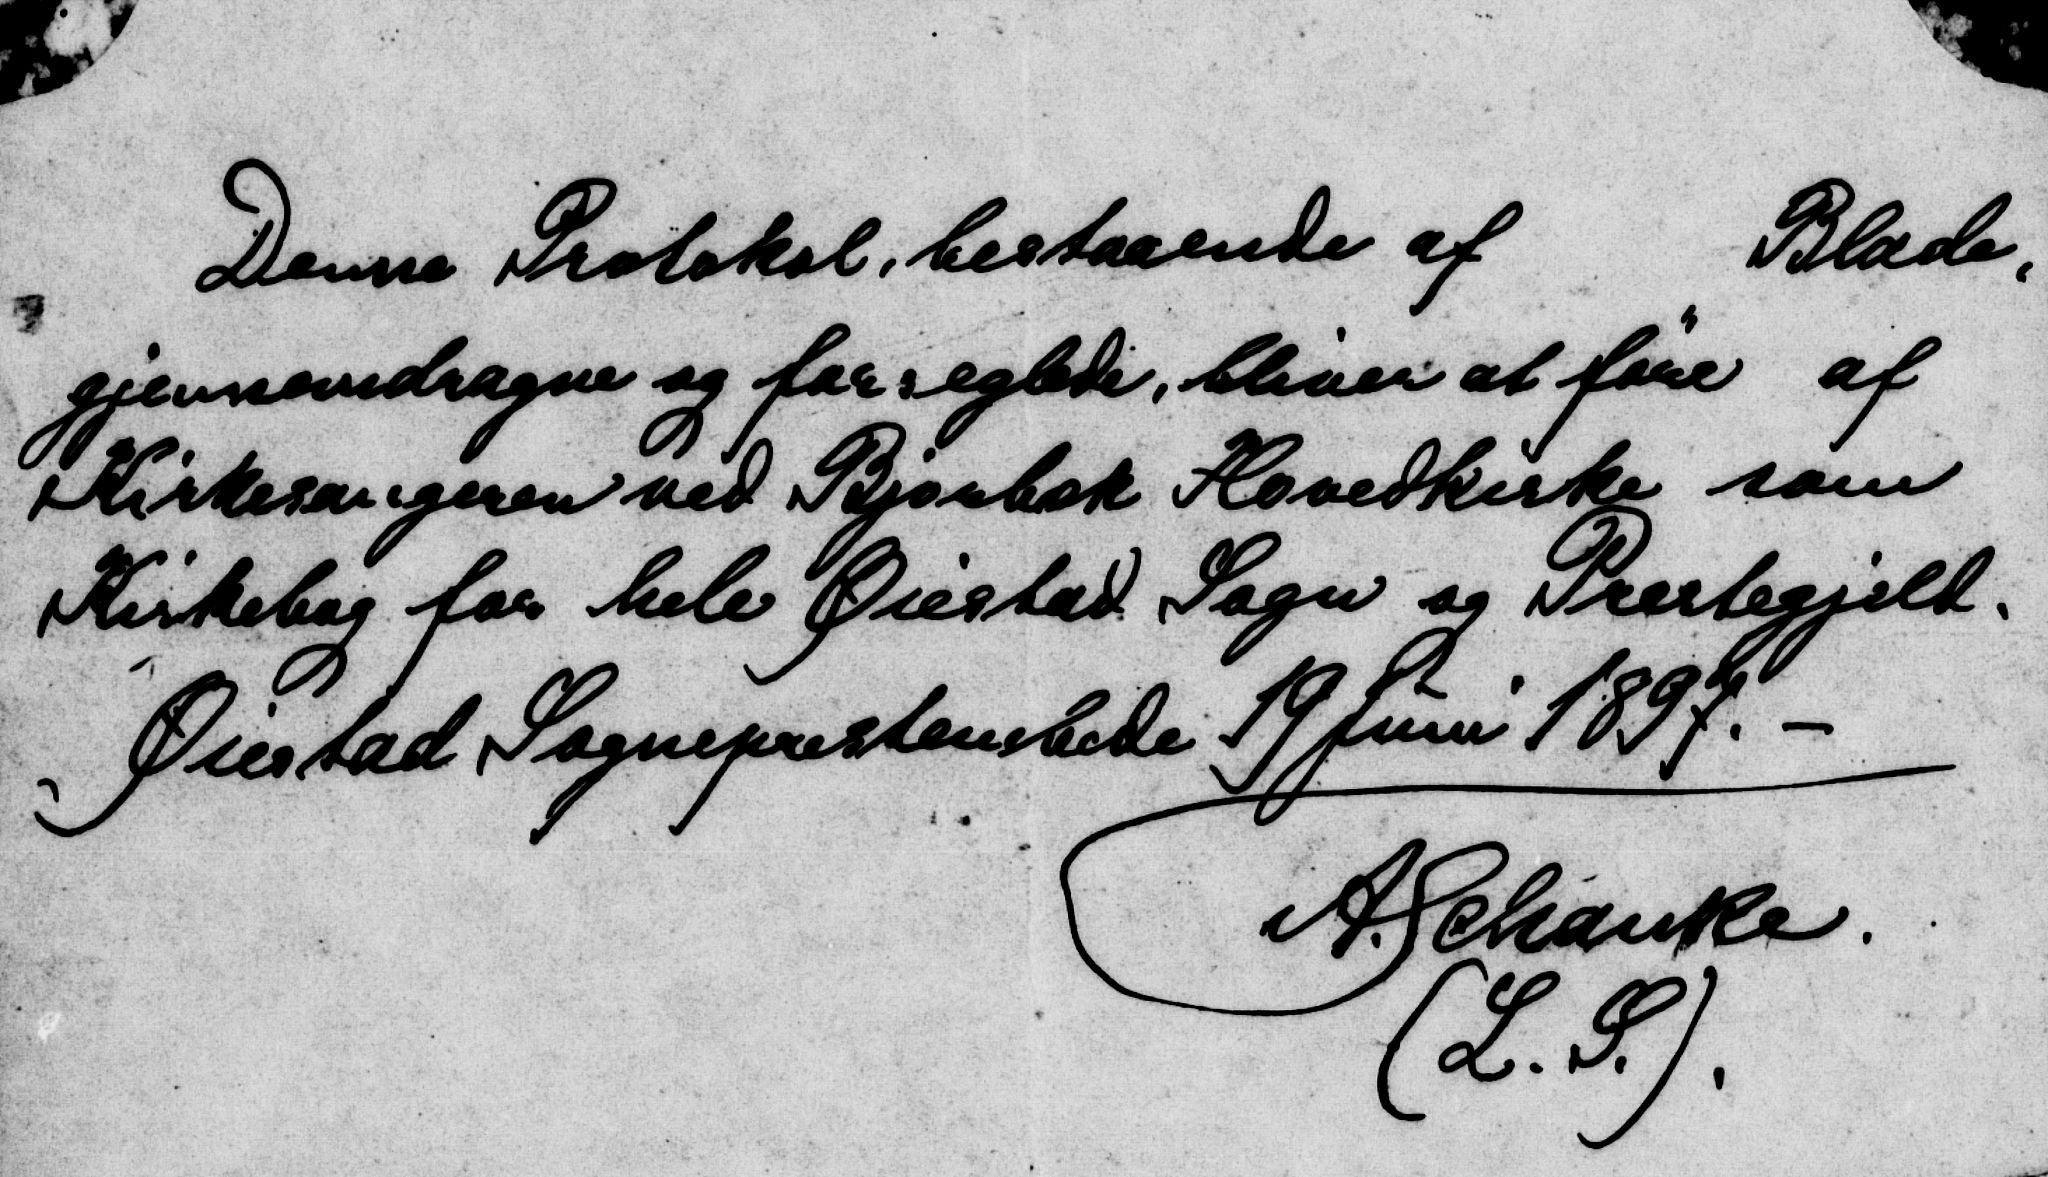 Denne Protokol, bestaaende af Blade,
gjennemdragne og forseglede, bliver at före af
Kirkesangeren ved Bjorbæk Hovedkirke som
Kirkebog for hele Øiestad Sogn og Prestegjeld.
Øiestad Sogneprestembede 19 Juni 1897. –
A. Schanke.
(L. S.).